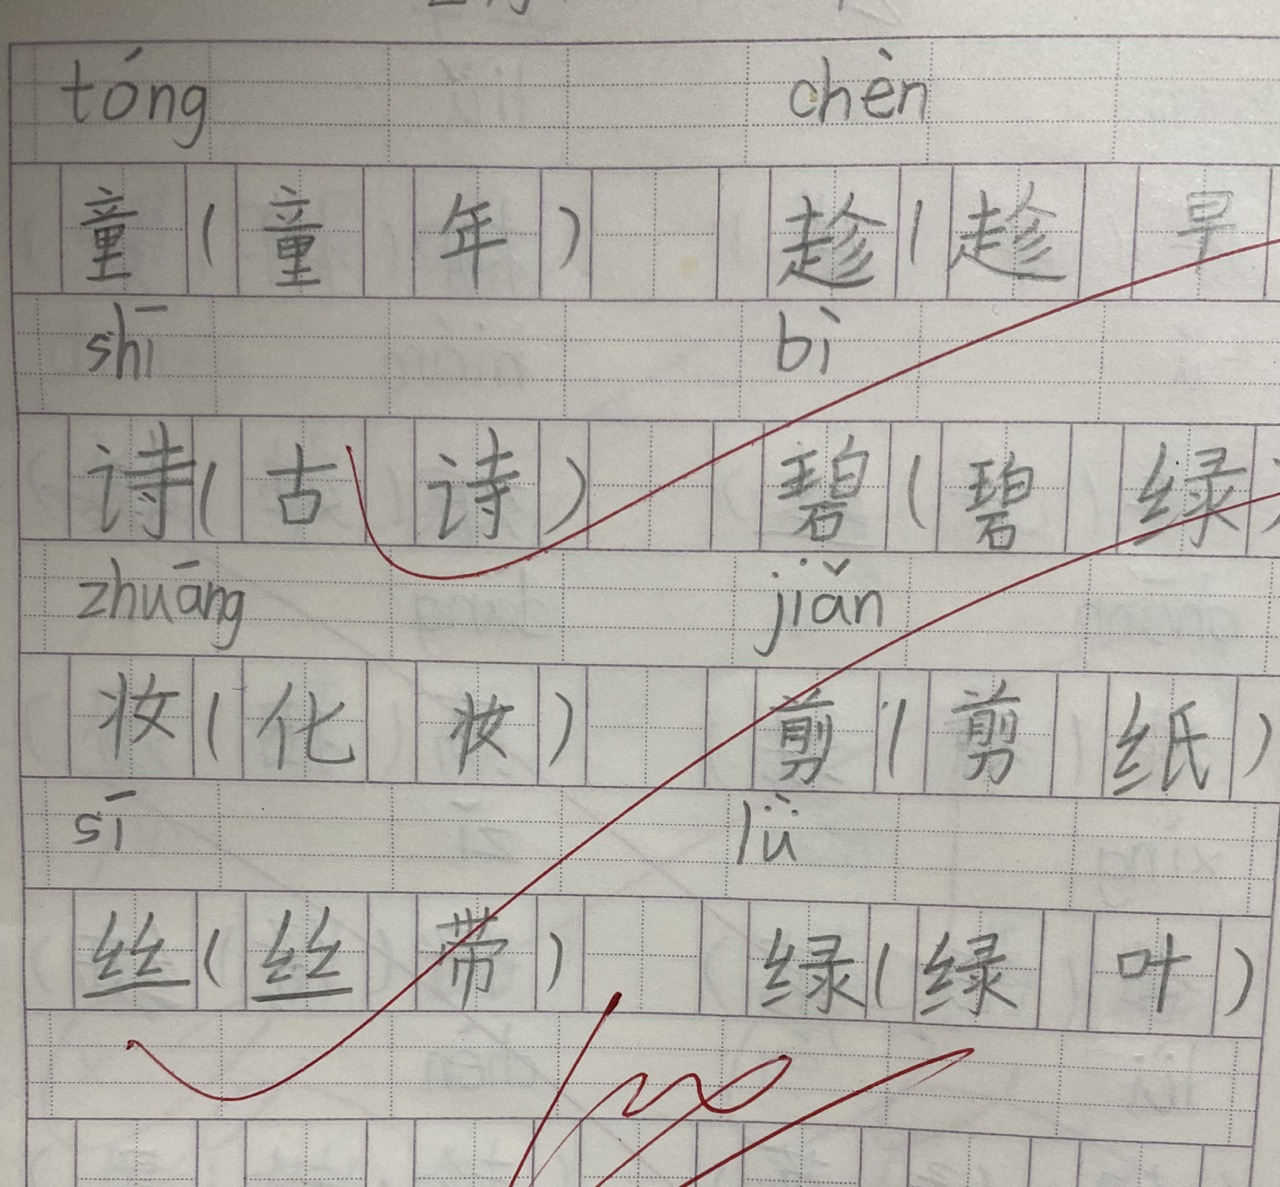 tóng chèn
童(童年) 趁(趁早
shī bì
诗(古诗) 碧(碧绿)
zhuāng jiǎn
妆(化妆) 剪(剪纸)
sī lǜ
丝(丝带) 绿(绿叶)